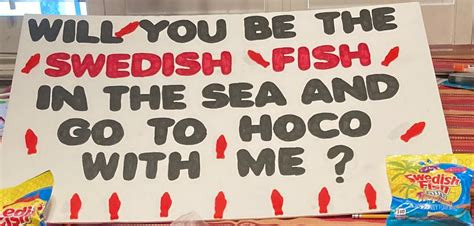 WILL YOU BE THE
SWEDISH FISH
IN THE SEA AND
GO TO HOCO
WITH ME ?
Swedish
Fish